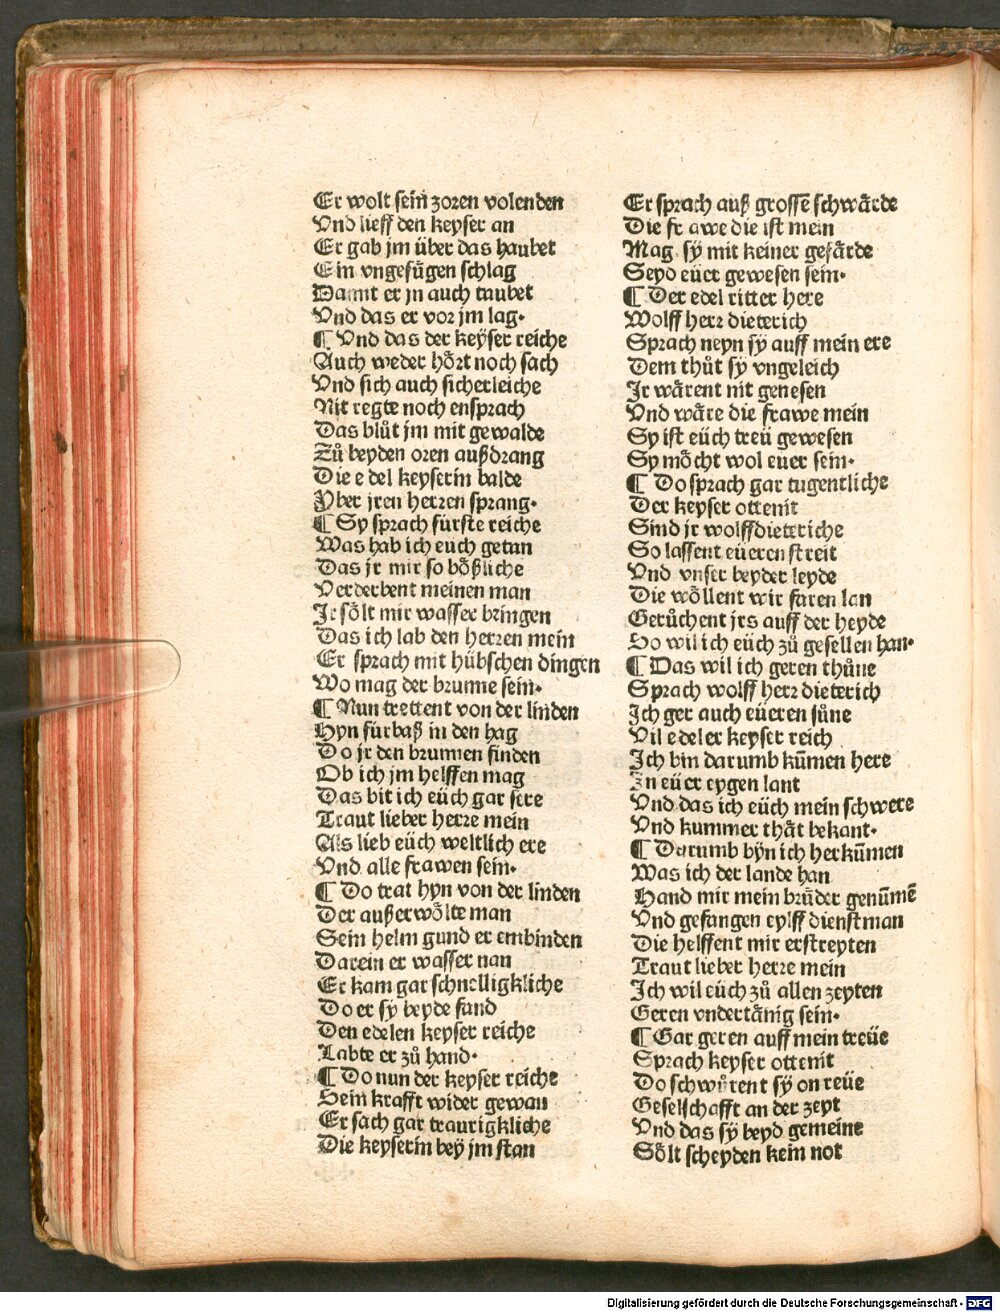 Er wolt sein zoren volenden
Vnd lieff den keyser an
Er gab jm über das haubet
Ein vngefügen schlag
Damit er jn auch taubet
Vnd das er vor jm lag.
¶ Vnd das der keÿser reiche
Auch weder hört noch sach
Vnd sich auch sicherleiche
Nit regte noch ensprach
Das blůt jm mit gewalde
Zů beyden oren außdrang
Die edel keyserin balde
Yber jren herren sprang.
¶ Sy sprach fürste reiche
Was hab ich euch getan
Das jr mir so bößliche
Verderbent meinen man
Jr sölt mir wasser bringen
Das ich lab den herren mein
Er sprach mit hübschen dingen
Wo mag der brunne sein.
¶ Nun trettent von der linden
Hyn fürbaß in den hag
Do jr den brunnen finden
Ob ich jm helffen mag
Das bit ich eüch gar sere
Traut lieber herre mein
Als lieb eüch weltlich ere
Vnd alle frawen sein.
¶ Do trat hyn von der linden
Der außerwölte man
Sein helm gund er embinden
Darein er wasser nan
Er kam gar schnelligkliche
Do er sy beyde fand
Den edelen keyser reiche
Labte er zů hand.
¶ Do nun der keyser reiche
Sein krafft wider gewan
Er sach gar traurigkliche
Die keyserin beÿ jm stan
Er sprach auß grossē schwärde
Die frawe die ist mein
Mag sÿ mit keiner gefärde
Seyd eüer gewesen sein.
¶ Der edel ritter here
Wolff herr dieterich
Sprach neyn sÿ auff mein ere
Dem thůt sÿ vngeleich
Jr wärent nit genesen
Vnd wäre die frawe mein
Sy ist eüch treü gewesen
Sy möcht wol euer sein.
¶ Do sprach gar tugentliche
Der keyser ottenit
Sind jr wolffdieteriche
So lassent eüeren streit
Vnd vnser beyder leyde
Die wöllent wir faren lan
Gerůchent jrs auff der heyde
So wil ich eüch zů gesellen han.
¶ Das wil ich geren thůne
Sprach wolff herr dieterich
Ich ger auch eüeren sůne
Vil edeler keyser reich
Ich bin darumb kūmen here
In eüer eygen lant
Vnd das ich eüch mein schwere
Vnd kummer thät bekant.
¶ Darumb bÿn ich herkūmen
Was ich der lande han
Hand mir mein brüder genūmē
Vnd gefangen eylff dienstman
Die helffent mir erstreyten
Traut lieber herre mein
Ich wil eüch zů allen zeyten
Geren vndertänig sein.
¶ Gar geren auff mein treüe
Sprach keyser ottenit
Do schwůrent sÿ on reüe
Geselschafft an der zeyt
Vnd das sÿ beyd gemeine
Sölt scheyden kein not
Digitalisierung gefördert durch die Deutsche Forschungsgemeinschaft - DFG